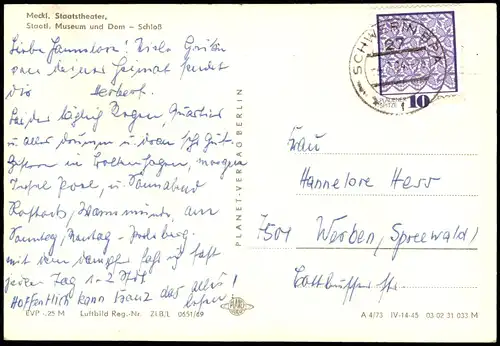 Meckl. Staatstheater,
Staatl. Museum und Dom – Schloß
Liebe Hannelore! Viele Grüße
von deiner Heimat sendet
dir Herbert.
täglich Regen, Quartier
u alles drumm u. dran sehr gut.
Gestern in Boltenhagen, morgen
Insel Poel, u. Sonnabend
Rostock, Warnemünde, am
Sonntag, Montag -
mit dem Dampfer fast
jeden Tag 1-2 Std
Hoffentlich kann Franz das alles
lesen!
PLANET-VERLAG BERLIN
SCHWERIN BPA
27
10
Frau
Hannelore Herr
7501 Werben, Spreewald
Cottbusser Str.
EVP -,25 M Luftbild Reg.-Nr. ZLB.L 0651/69
A 4/73 IV-14-45 03 02 31 033 M